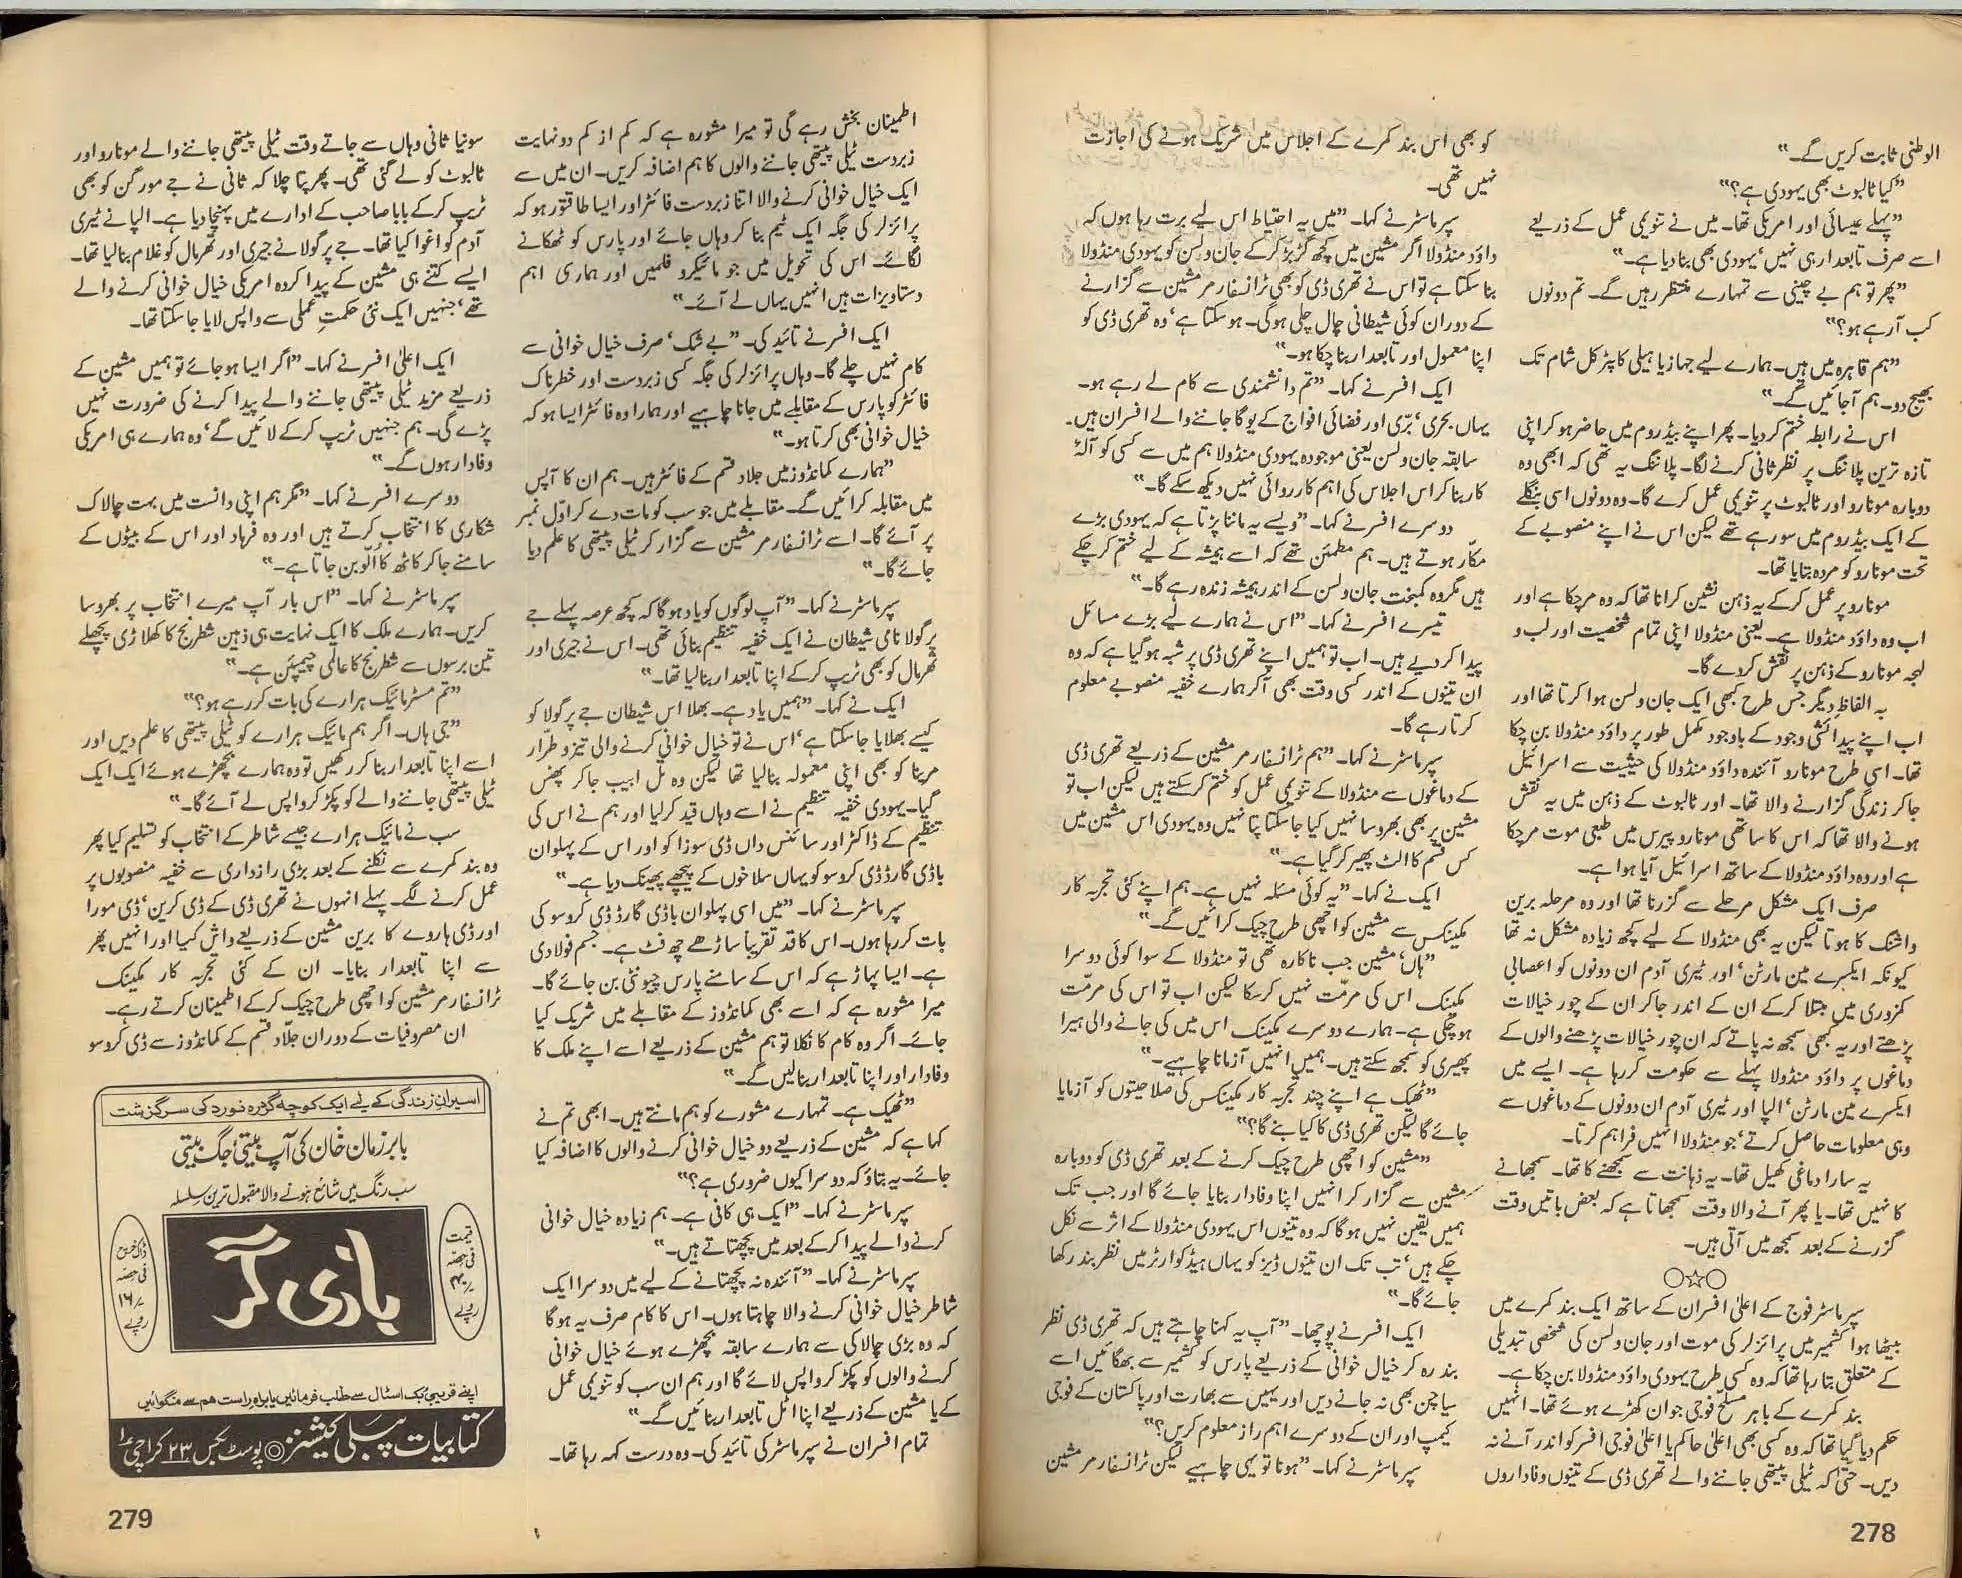 الوطنی ثابت کریں گے۔"
"کیا ٹالبوٹ بھی یہودی ہے؟"
"پہلے عیسائی اور امریکی تھا۔ میں نے تنویمی عمل کے ذریعے
اسے صرف تابعدار ہی نہیں' یہودی بھی بنا دیا ہے۔"
"پھر تو ہم بے چینی سے تمہارے منتظر رہیں گے۔ تم دونوں
کب آ رہے ہو؟"
"ہم قاہرہ میں ہیں۔ ہمارے لیے جہاز یا ہیلی کاپٹر کل شام تک
بھیج دو۔ ہم آ جائیں گے۔"
اس نے رابطہ ختم کر دیا۔ پھر اپنے بیڈ روم میں حاضر ہو کر اپنی
تازہ ترین پلاننگ پر نظر ثانی کرنے لگا۔ پلاننگ یہ تھی کہ ابھی وہ
دوبارہ مونارو اور ٹالبوٹ پر تنویمی عمل کرے گا۔ وہ دونوں اسی بنگلے
کے ایک بیڈ روم میں سو رہے تھے لیکن اس نے اپنے منصوبے کے
تحت مونارو کو مردہ بتایا تھا۔
مونارو پر عمل کر کے یہ ذہن نشین کرانا تھا کہ وہ مر چکا ہے اور
اب وہ داؤد منڈولا ہے۔ یعنی منڈولا اپنی تمام شخصیت اور لب و
لہجہ مونارو کے ذہن پر نقش کر دے گا۔
بہ الفاظ دیگر جس طرح کبھی ایک جان ولسن ہوا کرتا تھا اور
اب اپنے پیدائشی وجود کے باوجود مکمل طور پر داؤد منڈولا بن چکا
تھا۔ اسی طرح مونارو آئندہ داؤد منڈولا کی حیثیت سے اسرائیل
جا کر زندگی گزارنے والا تھا۔ اور ٹالبوٹ کے ذہن میں یہ نقش
ہونے والا تھا کہ اس کا ساتھی مونارو پیرس میں طبعی موت مر چکا
ہے اور وہ داؤد منڈولا کے ساتھ اسرائیل آیا ہوا ہے۔
صرف ایک مشکل مرحلے سے گزرنا تھا اور وہ مرحلہ برین
واشنگ کا ہوتا لیکن یہ بھی منڈولا کے لیے کچھ زیادہ مشکل نہ تھا
کیونکہ ایکسرے مین مارٹن' اور ٹیری آدم ان دونوں کو اعصابی
کمزوری میں مبتلا کر کے ان کے اندر جا کر ان کے چور خیالات
پڑھتے اور یہ بھی سمجھ نہ پاتے کہ ان چور خیالات پڑھنے والوں کے
دماغوں پر داؤد منڈولا پہلے سے حکومت کر رہا ہے۔ ایسے میں
ایکسرے مین مارٹن' الپا اور ٹیری آدم ان دونوں کے دماغوں سے
وہی معلومات حاصل کرتے' جو منڈولا انہیں فراہم کرتا۔
یہ سارا دماغی کھیل تھا۔ یہ ذہانت سے سمجھنے کا تھا۔ سمجھانے
کا نہیں تھا۔ یا پھر آنے والا وقت سمجھاتا ہے کہ بعض باتیں وقت
گزرنے کے بعد سمجھ میں آتی ہیں۔
○☆○
سپر ماسٹر فوج کے اعلیٰ افسران کے ساتھ ایک بند کمرے میں
بیٹھا ہوا کشمیر میں پرائزلر کی موت اور جان ولسن کی شخصی تبدیلی
کے متعلق بتا رہا تھا کہ وہ کس طرح یہودی داؤد منڈولا بن چکا ہے۔
بند کمرے کے باہر مسلح فوجی جوان کھڑے ہوئے تھے۔ انہیں
حکم دیا گیا تھا کہ وہ کسی بھی اعلیٰ حاکم یا اعلیٰ فوجی افسر کو اندر آنے نہ
دیں۔ حتیٰ کہ ٹیلی پیتھی جاننے والے تھری ڈی کے تینوں وفاداروں
کو بھی اس بند کمرے کے اجلاس میں شریک ہونے کی اجازت
نہیں تھی۔
سپر ماسٹر نے کہا۔ "میں یہ احتیاط اس لیے برت رہا ہوں کہ
داؤد منڈولا اگر مشین میں کچھ گڑبڑ کر کے جان ولسن کو یہودی منڈولا
بنا سکتا ہے تو اس نے تھری ڈی کو بھی ٹرانسفارمر مشین سے گزارنے
کے دوران کوئی شیطانی چال چلی ہوگی۔ ہو سکتا ہے' وہ تھری ڈی کو
اپنا معمول اور تابعدار بنا چکا ہو۔"
ایک افسر نے کہا۔ "تم دانشمندی سے کام لے رہے ہو۔
یہاں بحری' بَری اور فضائی افواج کے یوگا جاننے والے افسران ہیں۔
سابقہ جان ولسن یعنی موجودہ یہودی منڈولا ہم میں سے کسی کو آلۂ
کار بنا کر اس اجلاس کی اہم کارروائی نہیں دیکھ سکے گا۔"
دوسرے افسر نے کہا۔ "ویسے یہ ماننا پڑتا ہے کہ یہودی بڑے
مکار ہوتے ہیں۔ ہم مطمئن تھے کہ اسے ہمیشہ کے لیے ختم کر چکے
ہیں مگر وہ کمبخت جان ولسن کے اندر ہمیشہ زندہ رہے گا۔"
تیسرے افسر نے کہا۔ "اس نے ہمارے لیے بڑے مسائل
پیدا کر دیے ہیں۔ اب تو ہمیں اپنے تھری ڈی پر شبہ ہو گیا ہے کہ وہ
ان تینوں کے اندر کسی وقت بھی آ کر ہمارے خفیہ منصوبے معلوم
کرتا رہے گا۔
سپر ماسٹر نے کہا۔ "ہم ٹرانسفارمر مشین کے ذریعے تھری ڈی
کے دماغوں سے منڈولا کے تنویمی عمل کو ختم کر سکتے ہیں لیکن اب تو
مشین پر بھی بھروسا نہیں کیا جا سکتا پتا نہیں وہ یہودی اس مشین میں
کس قسم کا الٹ پھیر کر گیا ہے۔"
ایک نے کہا۔ "یہ کوئی مسئلہ نہیں ہے۔ ہم اپنے کئی تجربہ کار
مکینکس سے مشین کو اچھی طرح چیک کرائیں گے۔"
"ہاں' مشین جب ناکارہ تھی تو منڈولا کے سوا کوئی دوسرا
مکینک اس کی مرمت نہیں کر سکا لیکن اب تو اس کی مرمت
ہو چکی ہے۔ ہمارے دوسرے مکینک اس میں کی جانے والی ہیرا
پھیری کو سمجھ سکتے ہیں۔ ہمیں انہیں آزمانا چاہیے۔"
"ٹھیک ہے اپنے چند تجربہ کار مکینکس کی صلاحیتوں کو آزمایا
جائے گا لیکن تھری ڈی کا کیا بنے گا؟"
"مشین کو اچھی طرح چیک کرنے کے بعد تھری ڈی کو دوبارہ
مشین سے گزار کر انہیں اپنا وفادار بنایا جائے گا اور جب تک
ہمیں یقین نہیں ہوگا کہ وہ تینوں اس یہودی منڈولا کے اثر سے نکل
چکے ہیں' تب تک ان تینوں ڈیز کو یہاں ہیڈ کوارٹر میں نظر بند رکھا
جائے گا۔"
ایک افسر نے پوچھا۔ "آپ یہ کہنا چاہتے ہیں کہ تھری ڈی نظر
بند رہ کر خیال خوانی کے ذریعے پارس کو کشمیر سے بھگائیں اسے
سیاچن بھی نہ جانے دیں اور یہیں سے بھارت اور پاکستان کے فوجی
کیمپ اور ان کے دوسرے اہم راز معلوم کریں؟"
سپر ماسٹر نے کہا۔ "ہونا تو یہی چاہیے لیکن ٹرانسفارمر مشین
278
اطمینان بخش رہے گی تو میرا مشورہ ہے کہ کم از کم دو نہایت
زبردست ٹیلی پیتھی جاننے والوں کا ہم اضافہ کریں۔ ان میں سے
ایک خیال خوانی کرنے والا اتنا زبردست فائٹر اور ایسا طاقتور ہو کہ
پرائزلر کی جگہ ایک ٹیم بنا کر وہاں جائے اور پارس کو ٹھکانے
لگائے۔ اس کی تحویل میں جو مائیکرو فلمیں اور ہماری اہم
دستاویزات ہیں انہیں یہاں لے آئے۔"
ایک افسر نے تائید کی۔ "بے شک' صرف خیال خوانی سے
کام نہیں چلے گا۔ وہاں پرائزلر کی جگہ کسی زبردست اور خطرناک
فائٹر کو پارس کے مقابلے میں جانا چاہیے اور ہمارا وہ فائٹر ایسا ہو کہ
خیال خوانی بھی کرتا ہو۔"
"ہمارے کمانڈوز میں جلاد قسم کے فائٹر ہیں۔ ہم ان کا آپس
میں مقابلہ کرائیں گے۔ مقابلے میں جو سب کو مات دے کر اوّل نمبر
پر آئے گا۔ اسے ٹرانسفارمر مشین سے گزار کر ٹیلی پیتھی کا علم دیا
جائے گا۔"
سپر ماسٹر نے کہا۔ "آپ لوگوں کو یاد ہوگا کہ کچھ عرصہ پہلے جے
پرگولا نامی شیطان نے ایک خفیہ تنظیم بنائی تھی۔ اس نے جیری اور
تھرمال کو بھی ٹریپ کر کے اپنا تابعدار بنا لیا تھا۔"
ایک نے کہا۔ "ہمیں یاد ہے۔ بھلا اس شیطان جے پرگولا کو
کیسے بھلایا جا سکتا ہے' اس نے تو خیال خوانی کرنے والی تیز و طرار
مرینا کو بھی اپنی معمولہ بنا لیا تھا لیکن وہ تل ابیب جا کر پھنس
گیا۔ یہودی خفیہ تنظیم نے اسے وہاں قید کر لیا اور ہم نے اس کی
تنظیم کے ڈاکٹر اور سائنس داں ڈی سوزا کو اور اس کے پہلوان
باڈی گارڈ ڈی کروسو کو یہاں سلاخوں کے پیچھے پھینک دیا ہے۔"
سپر ماسٹر نے کہا۔ "میں اسی پہلوان باڈی گارڈ ڈی کروسو کی
بات کر رہا ہوں۔ اس کا قد تقریباً ساڑھے چھ فٹ ہے۔ جسم فولادی
ہے۔ ایسا پہاڑ ہے کہ اس کے سامنے پارس چیونٹی بن جائے گا۔
میرا مشورہ ہے کہ اسے بھی کمانڈوز کے مقابلے میں شریک کیا
جائے۔ اگر وہ کام کا نکلا تو ہم مشین کے ذریعے اسے اپنے ملک کا
وفادار اور اپنا تابعدار بنا لیں گے۔"
"ٹھیک ہے۔ تمہارے مشورے کو ہم مانتے ہیں۔ ابھی تم نے
کہا ہے کہ مشین کے ذریعے دو خیال خوانی کرنے والوں کا اضافہ کیا
جائے۔ یہ بتاؤ کہ دوسرا کیوں ضروری ہے؟"
سپر ماسٹر نے کہا۔ "ایک ہی کافی ہے۔ ہم زیادہ خیال خوانی
کرنے والے پیدا کر کے بعد میں پچھتاتے ہیں۔"
سپر ماسٹر نے کہا۔ "آئندہ نہ پچھتانے کے لیے میں دوسرا ایک
شاطر خیال خوانی کرنے والا چاہتا ہوں۔ اس کا کام صرف یہ ہوگا
کہ وہ بڑی چالاکی سے ہمارے سابقہ بچھڑے ہوئے خیال خوانی
کرنے والوں کو پکڑ کر واپس لائے گا اور ہم ان سب کو تنویمی عمل
کے یا مشین کے ذریعے اپنا اٹل تابعدار بنائیں گے۔"
تمام افسران نے سپر ماسٹر کی تائید کی۔ وہ درست کہہ رہا تھا۔
سونیا ثانی وہاں سے جاتے وقت ٹیلی پیتھی جاننے والے مونارو اور
ٹالبوٹ کو لے گئی تھی۔ پھر پتا چلا کہ ثانی نے جے مورگن کو بھی
ٹریپ کر کے بابا صاحب کے ادارے میں پہنچا دیا ہے۔ الپا نے ٹیری
آدم کو اغوا کیا تھا۔ جے پرگولا نے جیری اور تھرمال کو غلام بنا لیا تھا۔
ایسے کتنے ہی مشین کے پیدا کردہ امریکی خیال خوانی کرنے والے
تھے' جنہیں ایک نئی حکمتِ عملی سے واپس لایا جا سکتا تھا۔
ایک اعلیٰ افسر نے کہا۔ "اگر ایسا ہو جائے تو ہمیں مشین کے
ذریعے مزید ٹیلی پیتھی جاننے والے پیدا کرنے کی ضرورت نہیں
پڑے گی۔ ہم جنہیں ٹریپ کر کے لائیں گے' وہ ہمارے ہی امریکی
وفادار ہوں گے۔"
دوسرے افسر نے کہا۔ "مگر ہم اپنی دانست میں بہت چالاک
شکاری کا انتخاب کرتے ہیں اور وہ فرہاد اور اس کے بیٹوں کے
سامنے جا کر کاٹھ کا اُلّو بن جاتا ہے۔"
سپر ماسٹر نے کہا۔ "اس بار آپ میرے انتخاب پر بھروسا
کریں۔ ہمارے ملک کا ایک نہایت ہی ذہین شطرنج کا کھلاڑی پچھلے
تین برسوں سے شطرنج کا عالمی چیمپئن ہے۔"
"تم مسٹر مائیک ہرارے کی بات کر رہے ہو؟"
"جی ہاں۔ اگر ہم مائیک ہرارے کو ٹیلی پیتھی کا علم دیں اور
اسے اپنا تابعدار بنا کر رکھیں تو وہ ہمارے بچھڑے ہوئے ایک ایک
ٹیلی پیتھی جاننے والے کو پکڑ کر واپس لے آئے گا۔"
سب نے مائیک ہرارے جیسے شاطر کے انتخاب کو تسلیم کیا پھر
وہ بند کمرے سے نکلنے کے بعد بڑی رازداری سے خفیہ منصوبوں پر
عمل کرنے لگے۔ پہلے انہوں نے تھری ڈی کے ڈی کرین' ڈی مورا
اور ڈی ہاروے کا برین مشین کے ذریعے واش کیا اور انہیں پھر
سے اپنا تابعدار بنایا۔ ان کے کئی تجربہ کار مکینک
ٹرانسفارمر مشین کو اچھی طرح چیک کر کے اطمینان کرتے رہے۔
ان مصروفیات کے دوران جلّاد قسم کے کمانڈوز سے ڈی کروسو
اسیرانِ زندگی کے لیے ایک کوچہ گرد رہ نورد کی سرگزشت
بابر زمان خان کی آپ بیتی' جگ بیتی
سب رنگ میں شائع ہونے والا مقبول ترین سلسلہ
بازی گر
قیمت
فی حصہ
۴۰/-
روپے
ڈاک خرچ
فی حصہ
۱۶/-
روپے
اپنے قریبی بک اسٹال سے طلب فرمائیں یا براہِ راست ہم سے منگوائیں
کتابیات پبلی کیشنز ◎ پوسٹ بکس ۲۳ کراچی ۱
279